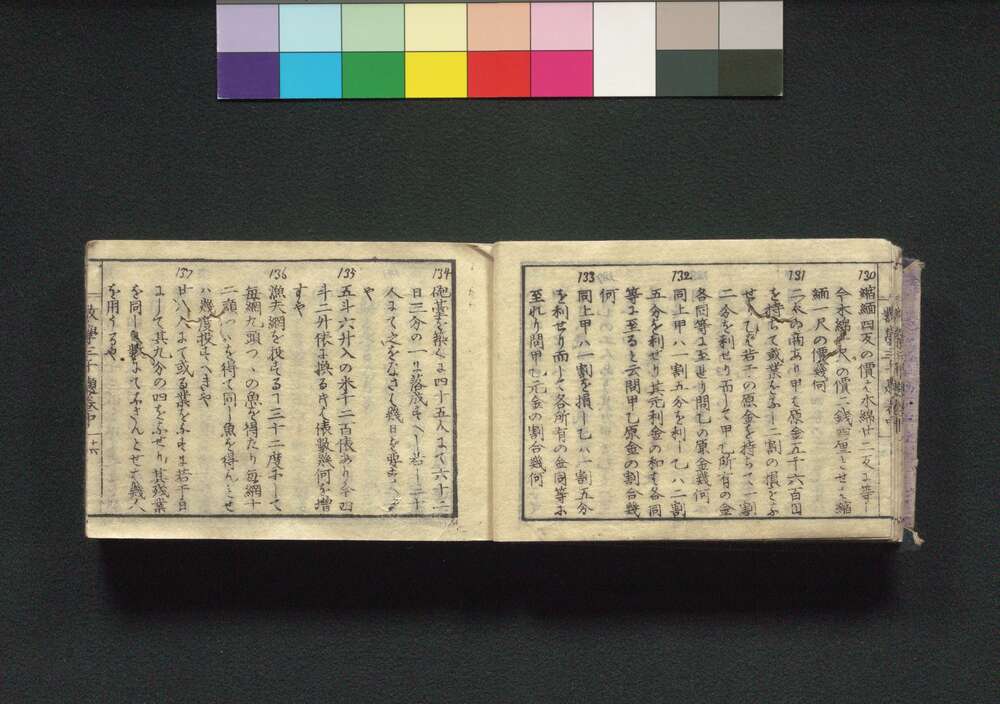 130
縮緬四反の價ハ木綿廿二反に等し
今木綿一尺の價二銭五厘とせは縮
緬一尺の價幾何
131
二人あり甲ハ原金五千六百円
を持ちて或業をなし二割の損をな
せり乙ハ若干の原金を持ちて一割
二分を利せり而して甲乙所有の金
各同等に至れり問乙の原金幾何
132
同上甲ハ一割五分を利し乙ハ二割
五分を利せり其元利金の和は各同
等に至ると云問甲乙原金の割合幾
何
133
同上甲ハ一割を損し乙ハ一割五分
を利せり而して各所有の金同等に
至れり問甲乙元金の割合幾何
134
砲臺を築くに四十五人にて六十二
日三分の一に落成すへし若し三十
人にて之をなさは幾日を要すへき
や
135
五斗六升入の米千二百俵あり今四
斗二升俵に換るときハ俵數幾何を増
すや
136
漁夫網を投する三十二度にして
毎網九頭つゝの魚を得たり毎網十
二頭つゝを得て同し魚を得んとせ
ハ幾度投すへきや
137
廿八人にて或る業をなすに若干日
にして其九分の四をなせり其残業
を同し日數にてなさんとせは幾人
を用うるや
數學三千題 巻中 十六